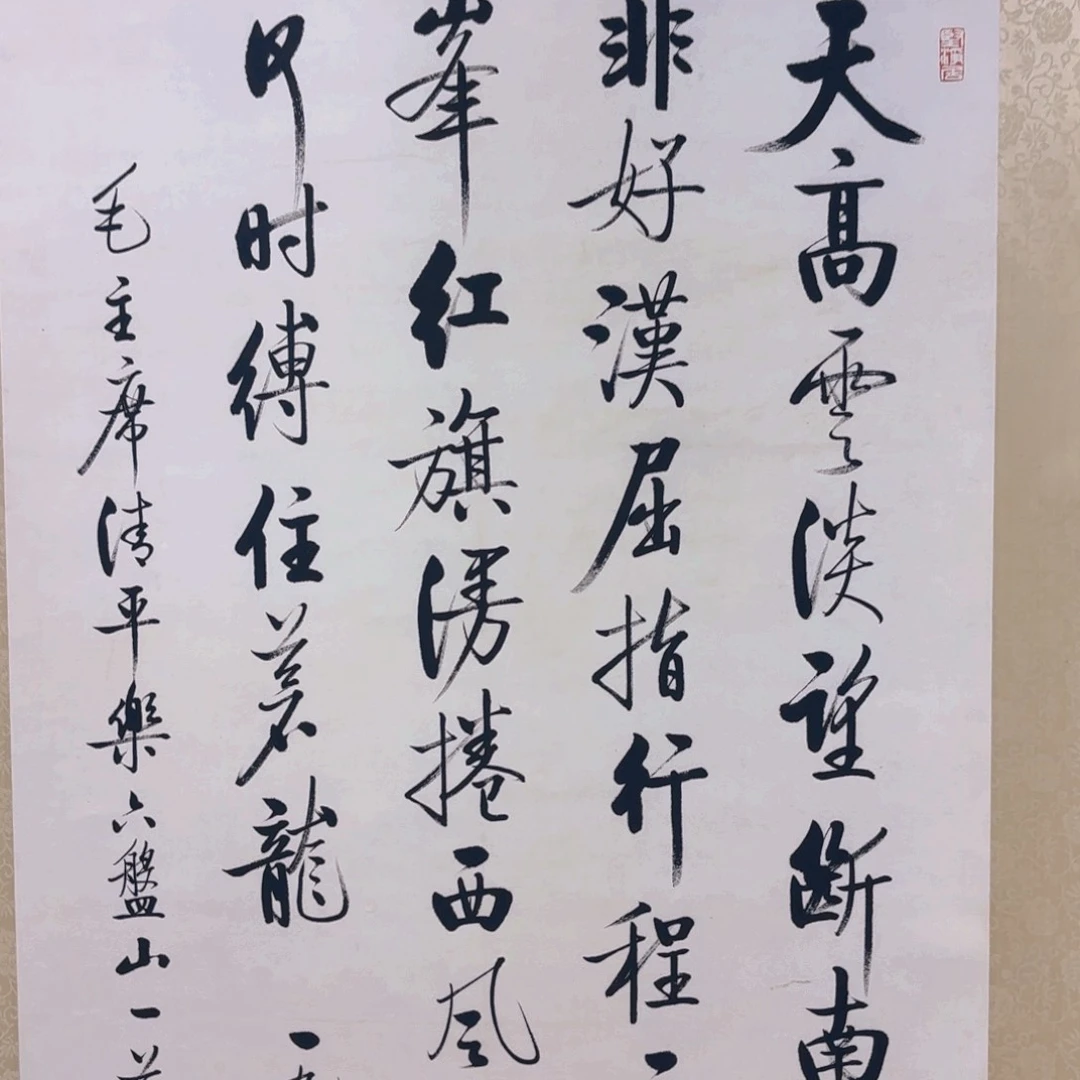 天高雲淡望斷南
非好漢屈指行程
峯红旗漫捲西风
何时缚住蒼龍 一九
毛主席清平樂六盤山一首